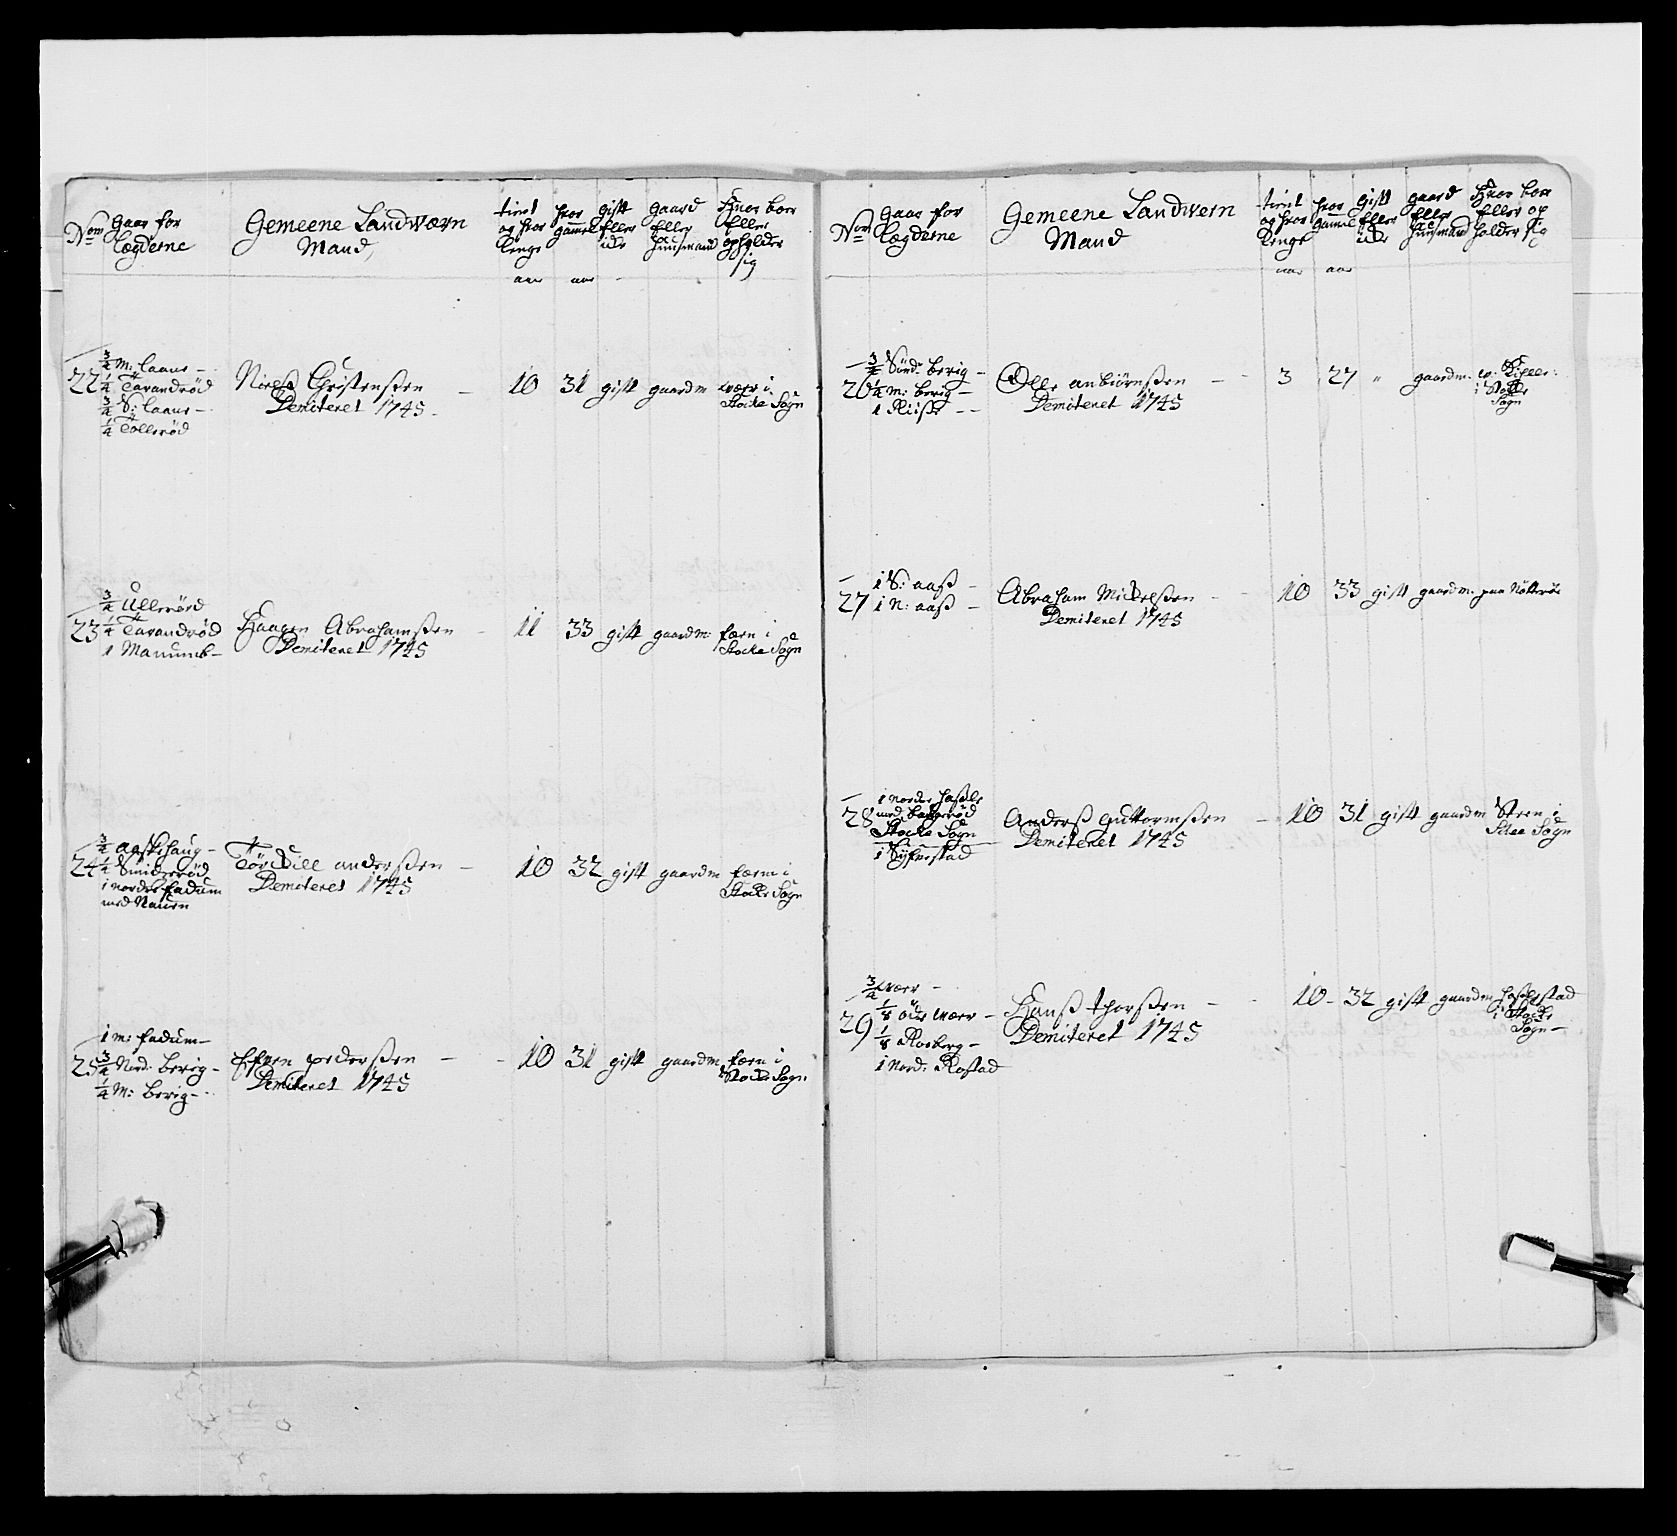 No
Gaar for
Lægderne
Gemeene Landværn
Mand,
tient
og hvor
lenge
hvor
gammel
gift
Eller
ide
gaard
Eller
huusmand
Huor boer
Eller
opholder
sig
aar
aar
22
3/4 M: laane -
1/4 Tarandrød
3/4 S: laane -
1/4 Tollerød
Nielß Christenßen
Demiteret 1745
10
31
gift
gaardm
wær i
Stocke Sogn
23
3/4 Ullerörd
1/4 Tarandrød
1 Manum -
Haagen Abrahamßen
Demiteret 1745
11
33
gift
gaardm:
færn i
Stocke Sogn
24
3/4 aaskihaug -
1/4 Smiderød
1 nordre fadum
med Nauen
Tördill anderßen
Demiteret 1745
10
32
gift
gaardm
færn i
Stocke Sogn
25
1 m: fadum -
3/4 Nord: berig -
1/4 M: berig -
Efven pederßen
Demiteret 1745
10
31
gift
gaardm
færn i
Stocke Sogn
No
Gaar for
Lægderne
Gemeene Landvern
Mand
tient
og hvor
lenge
hvor
gammel
gift
Eller
ide
gaard
Eller
huusmand
Huor boer
Eller op
holder sig
aar
aar
26
3/4 Sünd: berig -
1/4 M: berig -
1 Riise - -
Olle anbiörnßen
Demiteret 1745
3
27
"
gaardm:
i Stocke
Sogn
27
1 S: aaß -
1 N: aaß -
Abraham Mickelßen
Demiteret 1745
10
33
gift
gaardm:
paa Nötterøe
28
1 nordre haßle
med
Stocke Sogn
1 Syfvestad
Anderß Guttormßen
Demiteret 1745
10
31
gift
gaardm
Steen i
Sogn
29
3/4 wær -
1/8 wær -
1/8 Rosberg -
1 Nord: Rostad
Hanß thorßen
Demiteret 1745
10 -
32
gift
gaardm
haßlestad
i Stocke
Sogn -